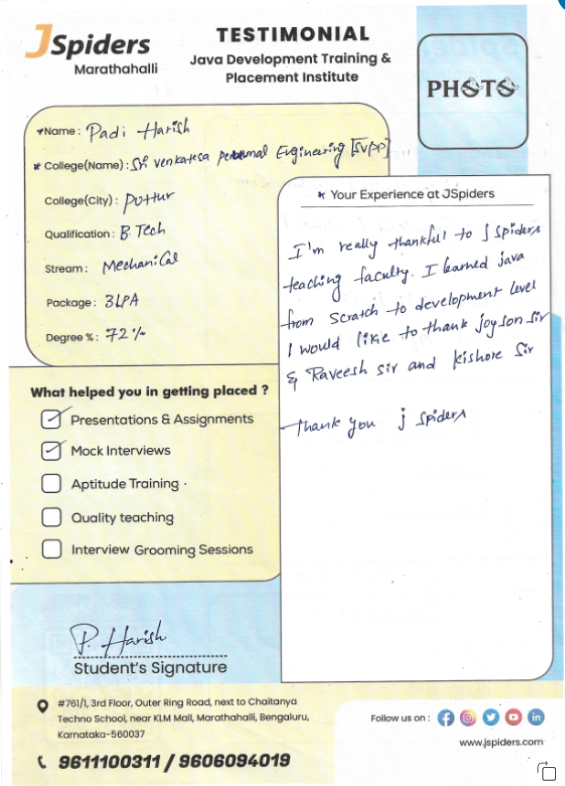 JSpiders
Marathahalli
TESTIMONIAL
Java Development Training &
Placement Institute
PHOTO
Name : Padi Harish
College(Name) : Sri venkatesa perumal Engineering [SVPP]
College(City) : puttur
Qualification : B. Tech
Stream : Mechanical
Package : 3LPA
Degree % : 72%
What helped you in getting placed ?
Presentations & Assignments
Mock Interviews
Aptitude Training
Quality teaching
Interview Grooming Sessions
P. Harish
Student's Signature
Your Experience at JSpiders
I'm really thankful to J Spiders
teaching faculty. I learned java
from scratch to development level
I would like to thank joyson sir
& Raveesh sir and kishore Sir
thank you j spiders
#761/1, 3rd Floor, Outer Ring Road, next to Chaitanya
Techno School, near KLM Mall, Marathahalli, Bengaluru,
Karnataka-560037
9611100311 / 9606094019
Follow us on :
www.jspiders.com